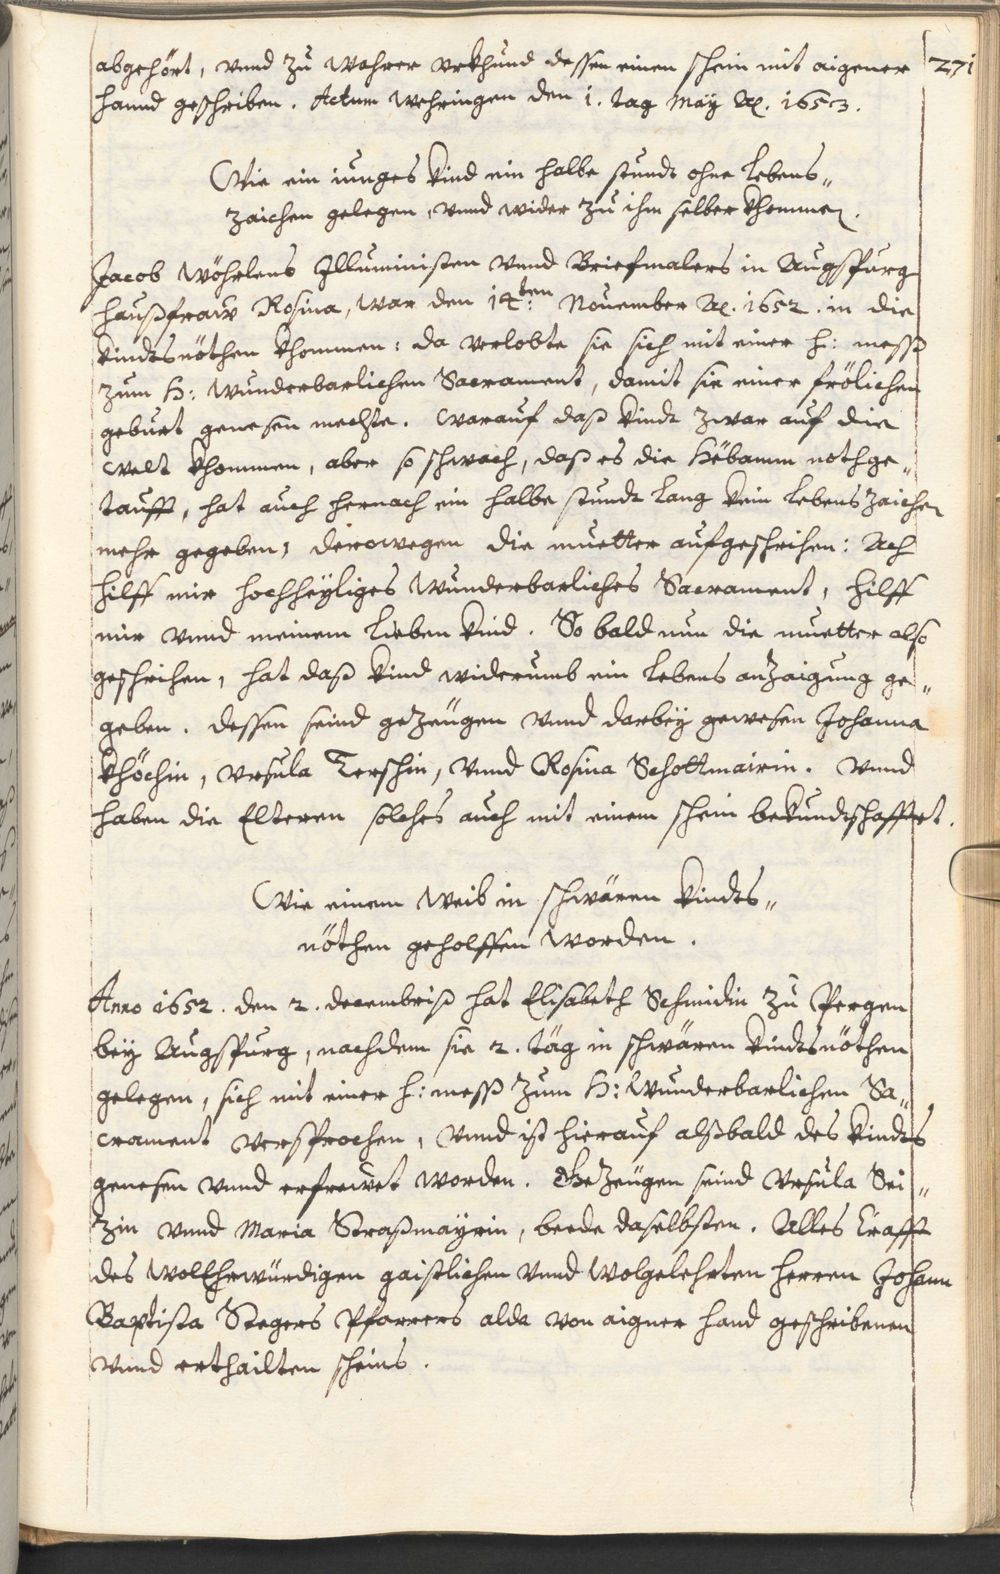 271
abgehört, vnnd zu wahrer vrkhund dessen einen schein mit aigener
hannd geschriben. Actum Wehringen den 1. tag Maÿ Aº. 1653.
Wie ein iunges kind ein halbe stundt ohne lebens„
zaichen gelegen, vnnd wider zu ihm selber khommen.
Jacob Wöhrlens Illuministen vnnd Brieffmalers in Augspurg
haußfraw Rosina, war den 14ten November Aº. 1652. in die
kindtsnöthen khommen: da verlobte sie sich mit einer h: mess
zum H: Wunderbarlichen Sacrament, damit sie einer frölichen
geburt genesen mechte. Warauf daß kindt zwar auf die
Welt khommen, aber so schwach, daß es die Hëbamm nothge„
taufft, hat auch hernach ein halbe stundt lang kein lebens zaichen
mehr gegeben, derowegen die muetter aufgeschrihen: Ach
hilff mir hochheÿliges Wunderbarliches Sacrament, hilff
mir vnnd meinem lieben kind. So bald nun die muetter also
geschrihen, hat daß kind widerumb ein lebens anzaigung ge„
geben. dessen seind gezeügen vnnd darbeÿ gewesen Johanna
Khöchin, Vrsula Terschin, vnnd Rosina Schottmairin. vnnd
haben die Elteren solches auch mit einem schein bekundtschafftet.
Wie einem Weib in schwären kindts„
nöthen geholffen worden.
Anno 1652. den 2. decembriß hat Elisabeth Schmidin zu Pergen
beÿ Augspurg, nachdem sie 2. täg in schwären kindtsnöthen
gelegen, sich mit einer h: mess zum H: Wunderbarlichen Sa„
crament versprochen, vnnd ist hierauf alßbald des kindts
genesen vnnd erfrewet worden. Gezeugen seind Vrsula Sei„
zin vnnd Maria Straßmaÿrin, beede daselbsten. Alles Crafft
des WolEhrwürdigen gaistlichen vnnd wolgelehrten herren Johann
Baptista Stegers Pfarrers alda von aigner hand geschribenen
vnnd erthailten scheins.